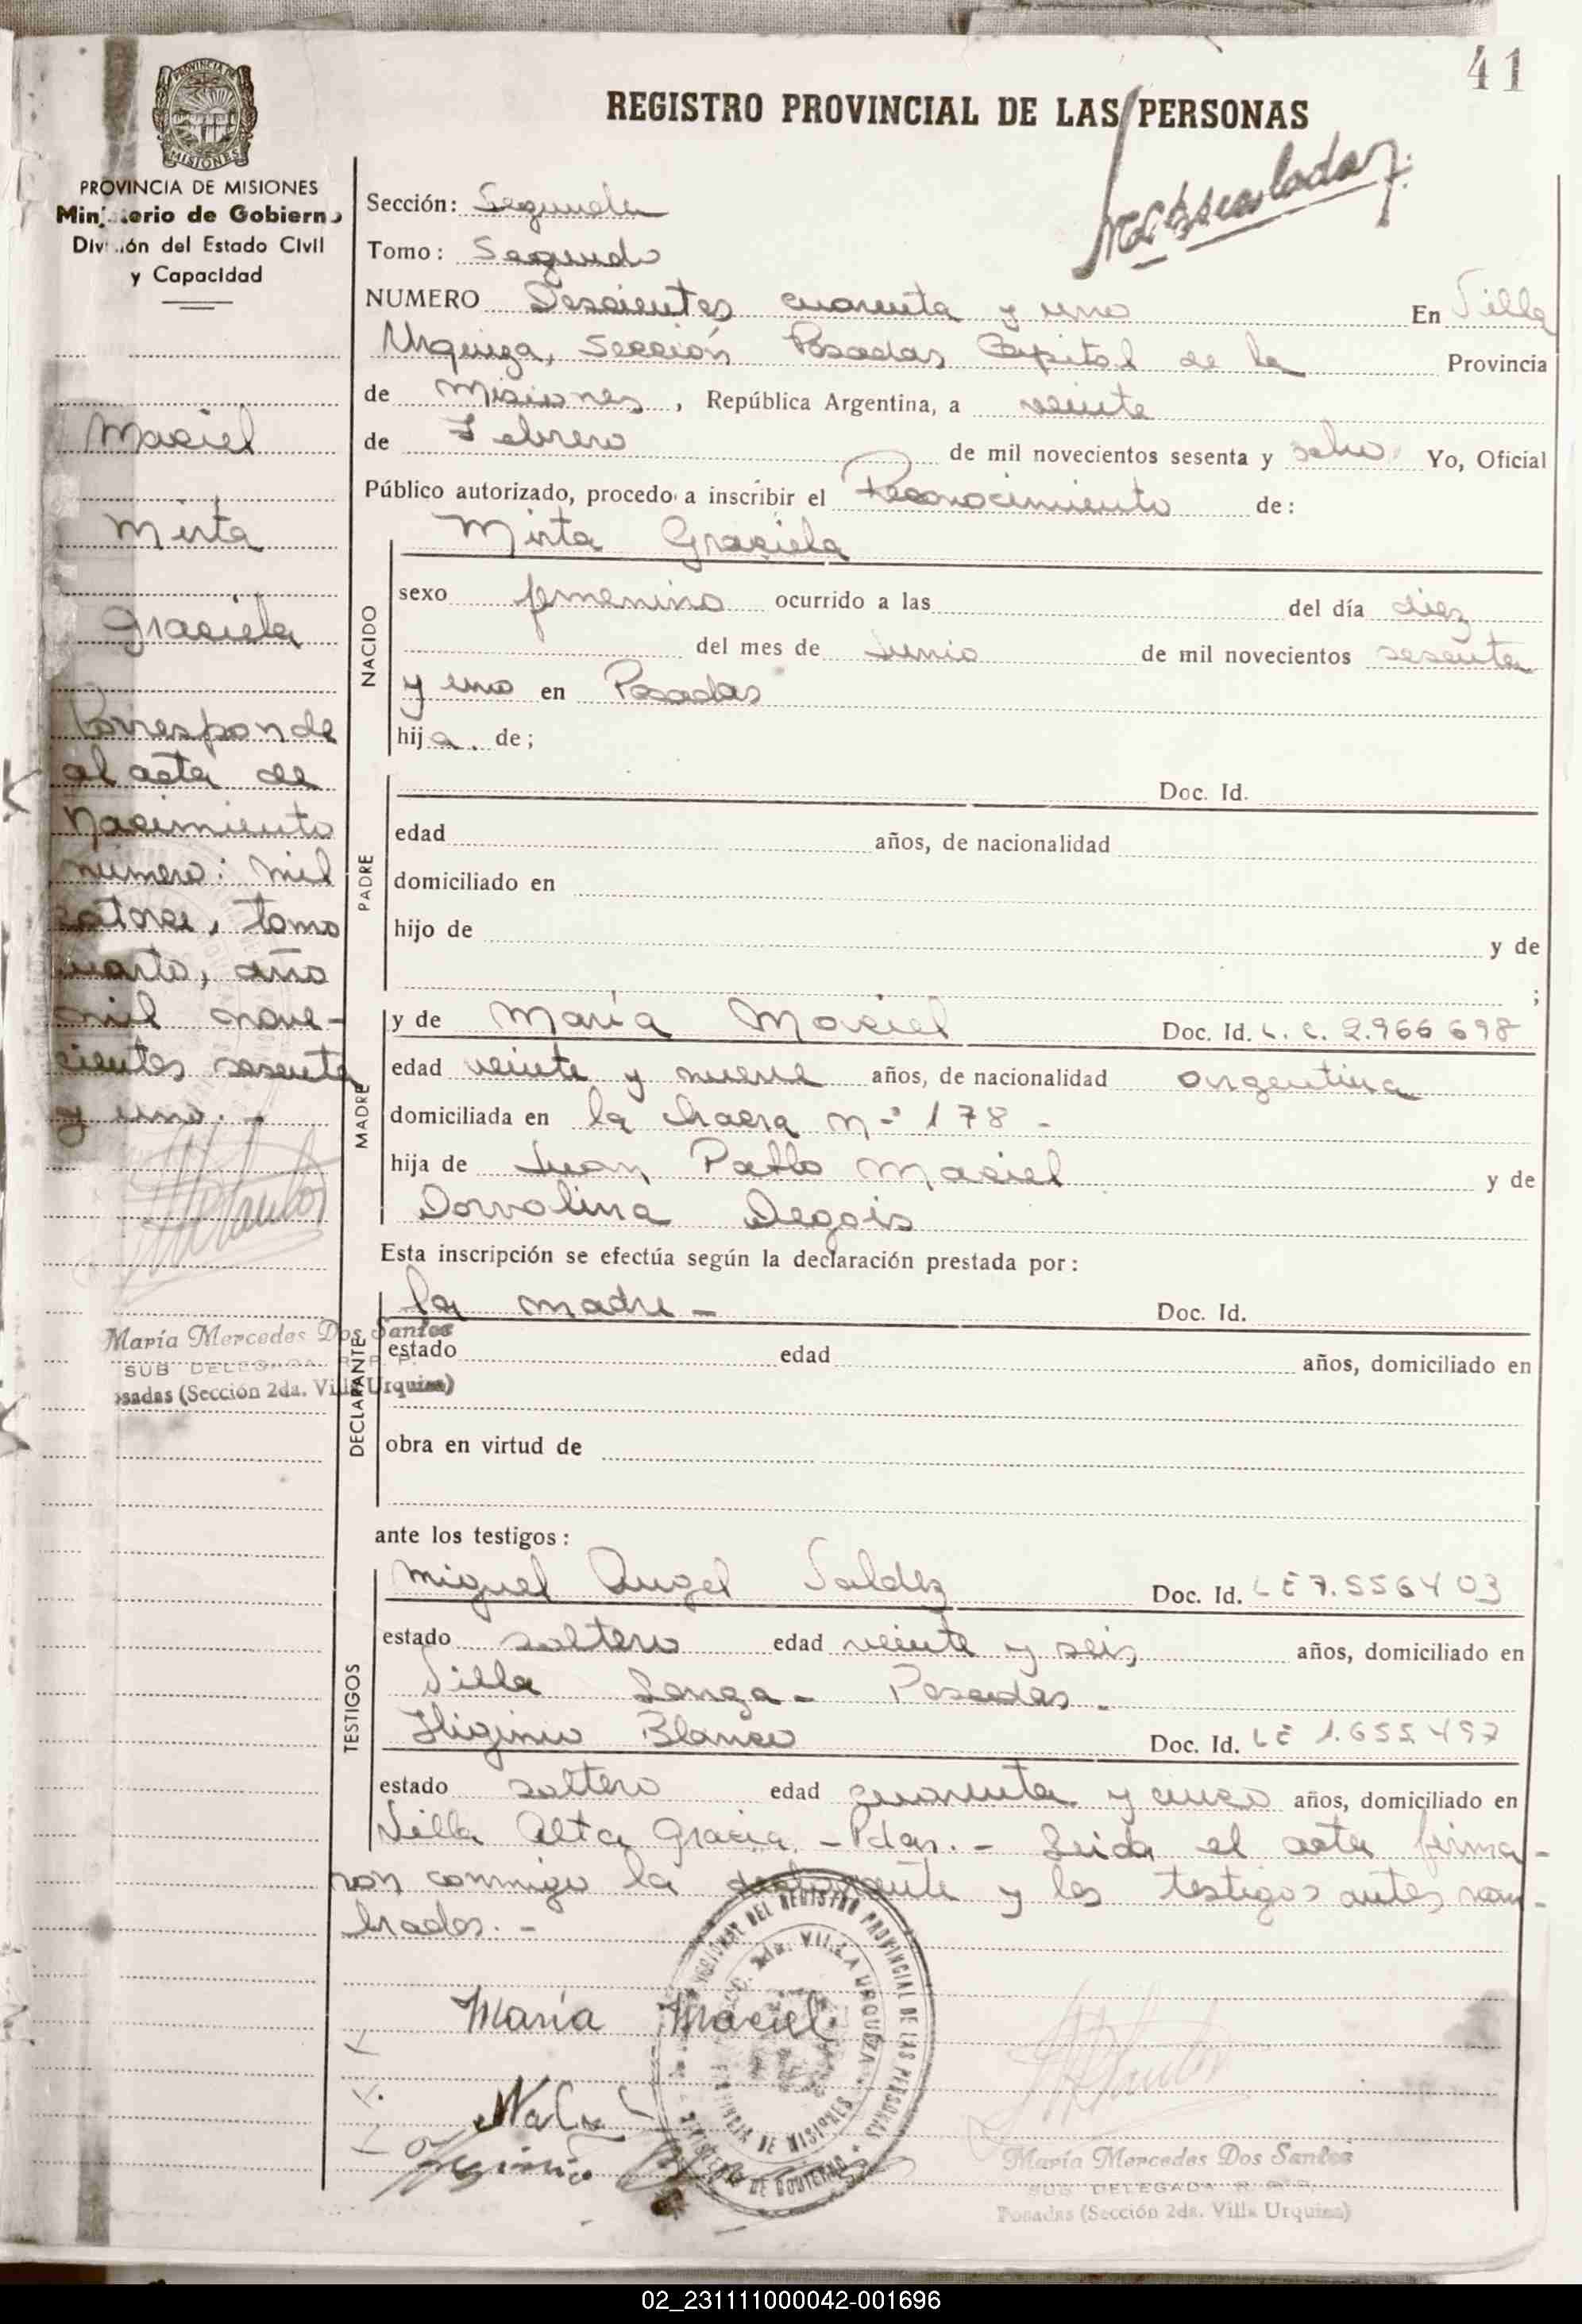 41
REGISTRO PROVINCIAL DE LAS PERSONAS
PROVINCIA DE MISIONES
Ministerio de Gobierno
División del Estado Civil
y Capacidad
Maciel
Mirta
Graciela
Corresponde
al acta de
Nacimiento
número: mil
catorce, tomo
cuarto, año
mil nove-
cientos sesenta
y uno. -
María Mercedes Dos Santos
SUB DELEGADA R. P. P.
Posadas (Sección 2da. Villa Urquiza)
Sección: Segunda
Tomo: Segundo
NUMERO Doscientos cuarenta y uno En Villa
Urquiza, Sección Posadas Capital de la Provincia
de Misiones, República Argentina, a veinte
de Febrero de mil novecientos sesenta y ocho Yo, Oficial
Público autorizado, procedo a inscribir el Reconocimiento de:
NACIDO
Mirta Graciela
sexo femenino ocurrido a las del día diez
del mes de Junio de mil novecientos sesenta
y uno en Posadas
hija. de;
PADRE
Doc. Id.
edad años, de nacionalidad
domiciliado en
hijo de y de
;
MADRE
y de María Maciel Doc. Id. L. C. 2.966 698
edad veinte y nueve años, de nacionalidad argentina
domiciliada en la chacra nº 178 -
hija de Juan Pablo Maciel y de
Dorvalina Degois
Esta inscripción se efectúa según la declaración prestada por:
DECLARANTE
la madre - Doc. Id.
estado edad años, domiciliado en
obra en virtud de
ante los testigos:
TESTIGOS
Miguel Angel Valdez Doc. Id. LE 7.556403
estado soltero edad veinte y seis años, domiciliado en
Villa Longa - Posadas -
Higinio Blanco Doc. Id. LE 1.655497
estado soltero edad cuarenta y cinco años, domiciliado en
Villa Alta Gracia - Pdas. - Leida el acta firma-
ron conmigo la declarante y los testigos antes nom-
brados. -
María Maciel
Higinio
María Mercedes Dos Santos
SUB DELEGADA R. P. P.
Posadas (Sección 2da. Villa Urquiza)
02_231111000042-001696